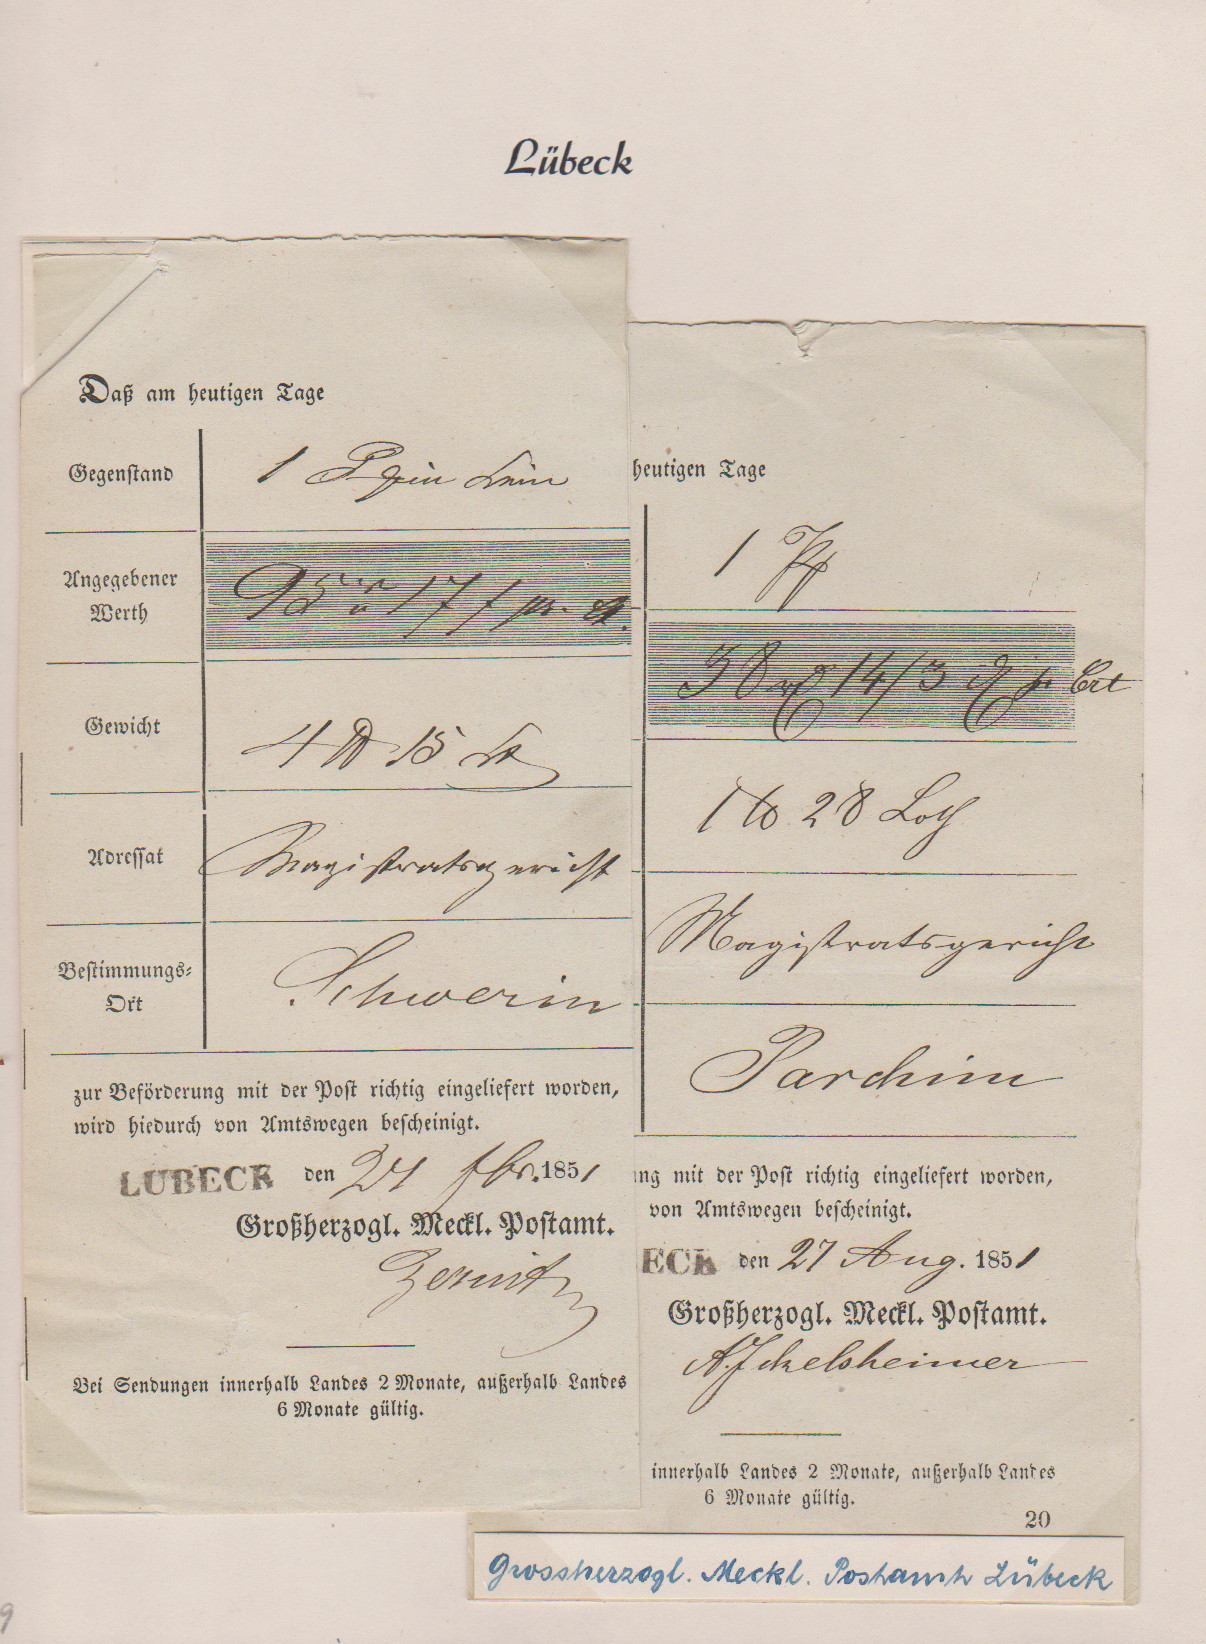 Lübeck
Daß am heutigen Tage
Gegenstand
1
Angegebener
Werth
Gewicht
4 ℔ 15
Adressat
Magistratsgericht
Bestimmungs-
Ort
Schwerin
zur Beförderung mit der Post richtig eingeliefert worden,
wird hiedurch von Amtswegen bescheinigt.
LÜBECK den 24 fbr. 1851
Großherzogl. Meckl. Postamt.
Bei Sendungen innerhalb Landes 2 Monate, außerhalb Landes
6 Monate gültig.
heutigen Tage
1
38 14/3 Crt
1 ℔ 28 Loth
Magistratsgericht
Parchim
ng mit der Post richtig eingeliefert worden,
von Amtswegen bescheinigt.
ECK den 27 Aug. 1851
Großherzogl. Meckl. Postamt.
innerhalb Landes 2 Monate, außerhalb Landes
6 Monate gültig.
20
Grossherzogl. Meckl. Postamt Lübeck
9